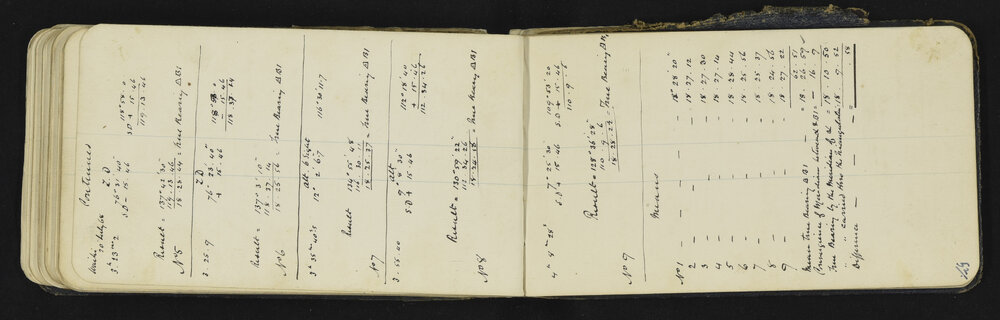 Continued
20 July 68
3h 23m 2
Z D 118° 58' 0
76° 31' 40" S D + 15 46
S.D - 15. 46 119 13. 46
Result = 137° 42' 30"
119 13 46
18 28 44 = True Bearing A B1
No 5
3. 25. 9
Z D
76° 23' 40" 118° 53' 0
+ 15 46 - 15. 46
118. 37. 14
Result = 137° 3' 10"
118 37. 14
18 25 56 = True Bearing A B1
No 6
3h 35m 40s.5
12° 2' 67" 116° 30' 117
Result 134° 55' 48
116 30 11
18. 25. 37 = True Bearing A B1
No 7
3. 55. 00
Alt
9° 8' 30" 112° 18' 40
S D + 15 46 + 15. 46
112 34. 26
Result = 130° 59' 22
112 34 26
18 24 56 = True Bearing A B1
No 8
4h 4m 28s
7 - 25 30 109° 53' 20
S.D + 15 46 S.D + 15 46
110. 9. 6
Result = 128° 36' 28"
110 9. 6
18 27 22 = True Bearing A B1
No 9
Means
No 1 - - - 18° 28' 20"
2 - - - 18. 27. 12
3 - - - 18. 27. 30
4 - - - 18 27. 14
5 - - - 18 28. 44
6 - - - 18 25. 56
7 - - - 18 25 37
8 - - - 18 24 56
9 - - - 18 27 22
62 51
Mean True Bearing A B1 = 18. 26. 59
Convergence of Meridians between & B1 = - 16 9
True Bearing by the Meridian of the 18 10 50
" " carried thro' the triangulation 18 9. 52
Difference - = 58
29